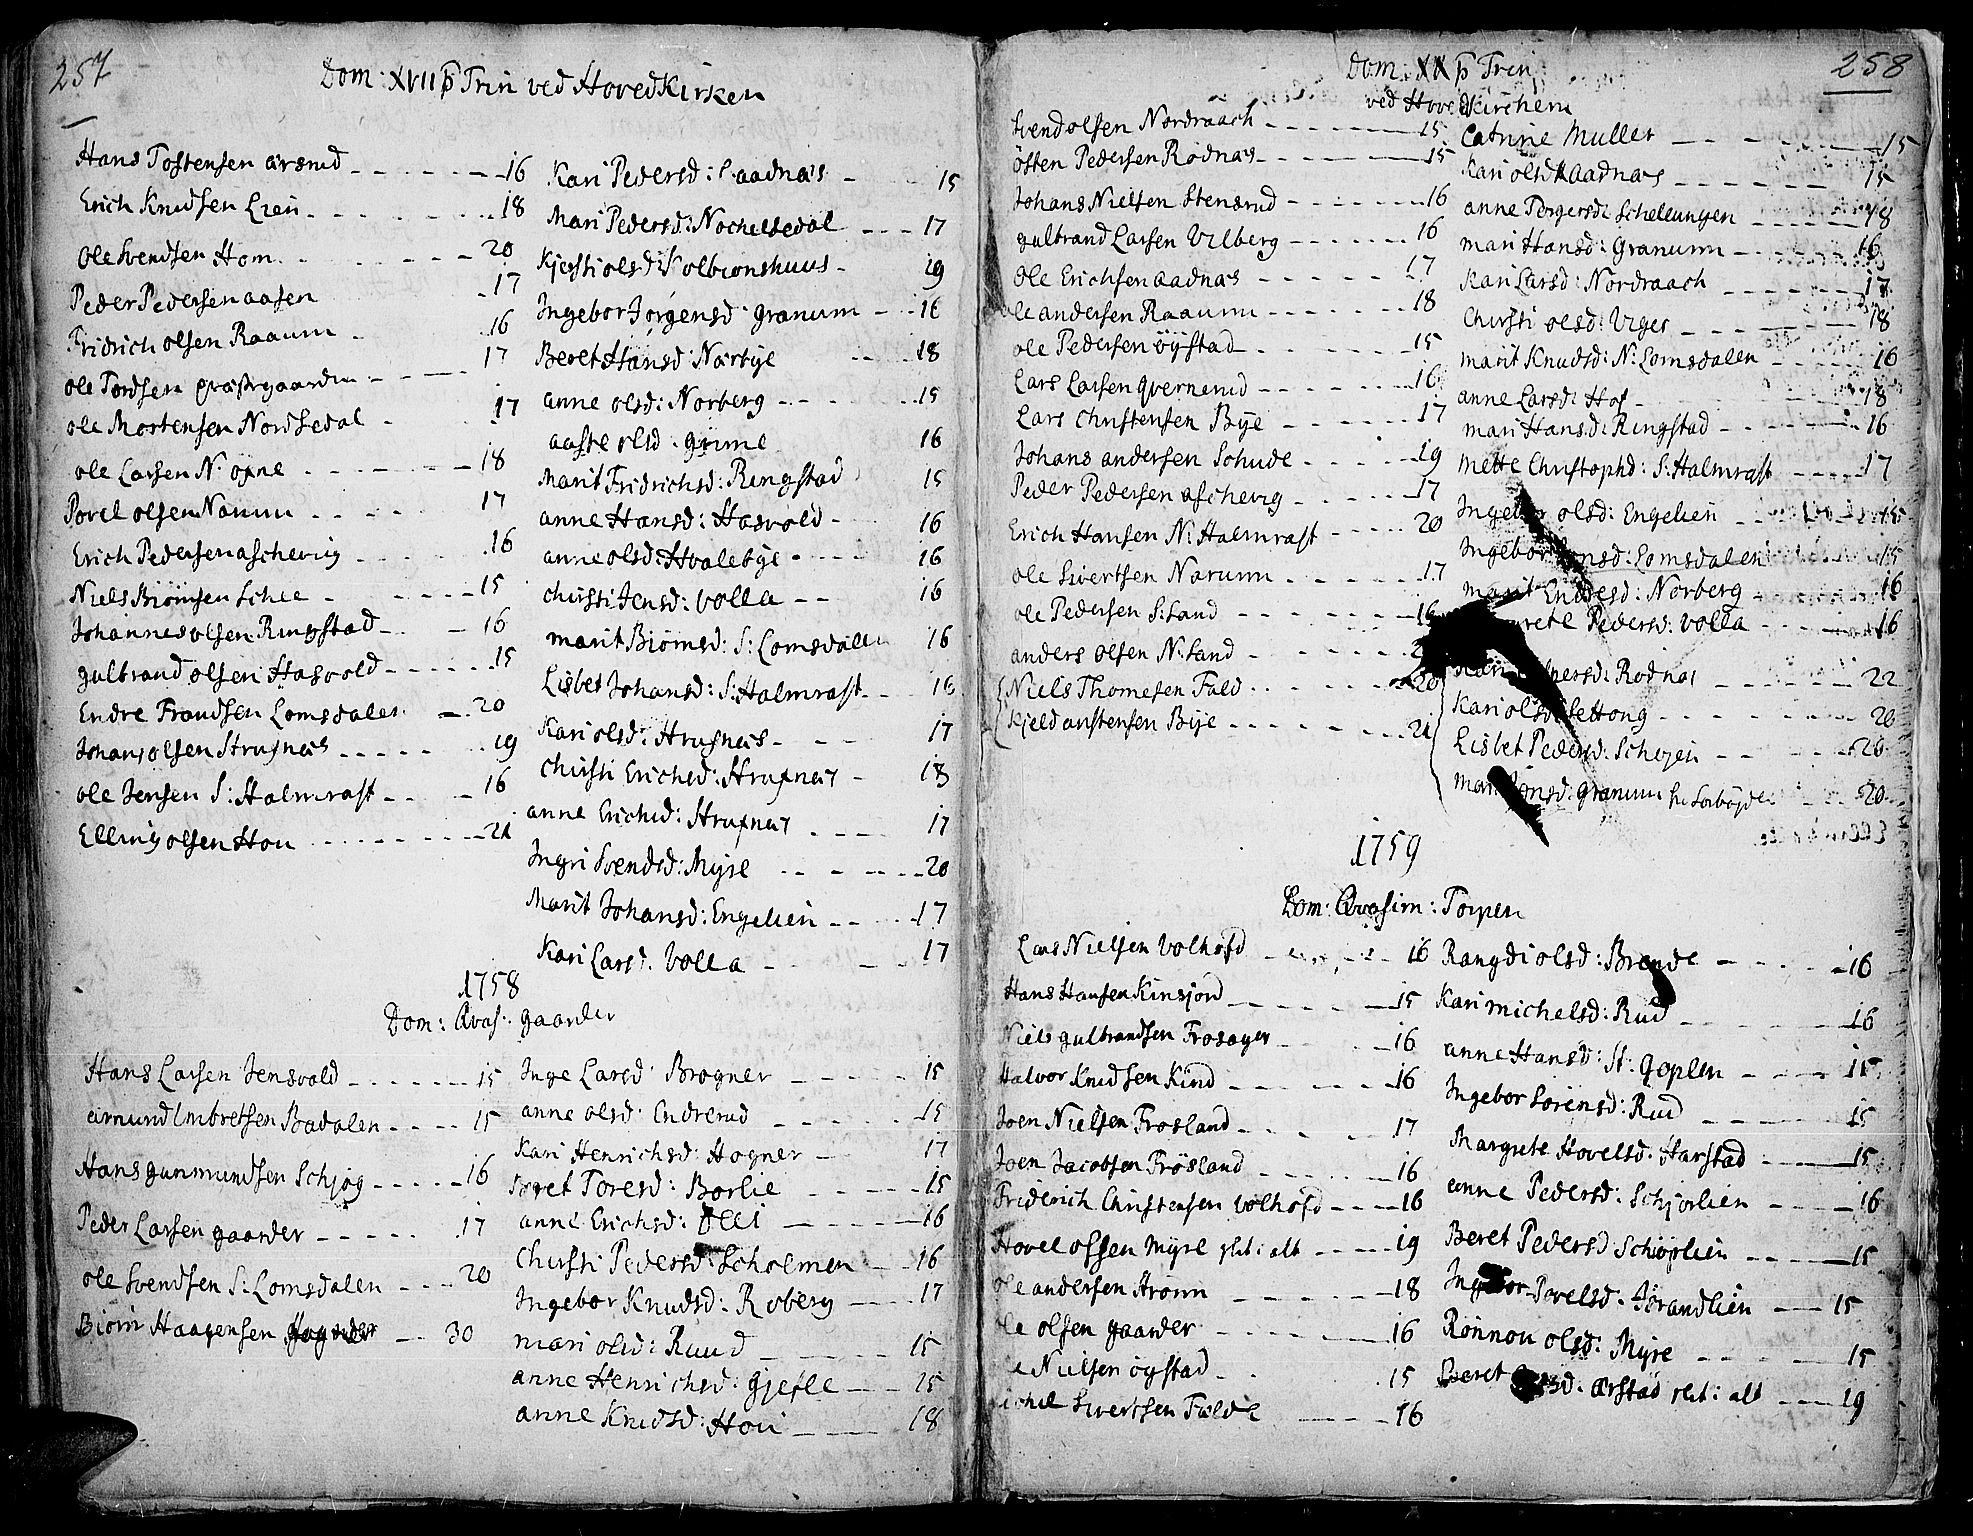 257
Dom: XVII p Trin ved HovedKirken
Hans Tostensen arsrud - 16
Erich Knudsen Lien - 18
Ole Svendsen Hom - 20
Peder Pedersen aasen - 17
Fridrich olsen Raaum - 16
ole Tordsen præstgaarden - 17
ole Mortensen Nordsedal - 17
ole Larsen N: öyne - 18
Povel olsen Narum - 17
Erich Pedersen ascherig - 16
Niels Biörnsen Schee - 15
Johannes olsen Ringstad - 16
gulbrand olsen Hasvold - 15
Endre Frandsen Lomsdalen - 20
Johans olsen Strugnæs - 19
ole Jensen S: Halmrast - 16
Elling olsen Hou - 21
Kari Pedersd: aadnæs - 15
Mari Pedersd: Nochelsedal - 17
Kjersti olsd: Solbionshuus - 19
Ingebor Jörgensd: granum - 16
Beret Hansd: Nörbye - 18
anne olsd: Norberg - 15
aaste olsd: grime - 16
Marit Fridrichsd: Ringstad - 15
anne Hansd: Hasvold - 16
anne olsd: Hvalebye - 16
christi Jensd: volla - 16
marit Biörnsd: S: Lomsdalen - 16
Lisbet Johansd: S: Halmrast - 16
Kari olsd: Strugnæs - 17
christi Erichsd: Strugnæs - 18
anne Erichsd: Strugnæs - 17
Ingri Svendsd: Myre - 20
Marit Johansd: Engelien - 17
Kari Larsd: volla - 17
1758
Dom: Qvas: gaarder
Hans Larsen Jensvold - 15
amund Imbretsen Badalen - 15
Hans gunmundsen Schjög - 16
Peder Larsen gaarder - 17
ole Svendsen S: Lomsdalen - 20
Biörn Haagensen - 30
Inge Larsd: Brogner - 15
anne olsd: Endrerud - 15
Kari Henrichsd: Hogner - 17
Beret Toresd: Borlie - 15
anne Erichsd: Olli - 16
Christi Pedersd: Scholmen - 16
Ingebor Knudsd: Roberg - 17
mari olsd: Ruud - 15
anne Henrichsd: gjefle - 15
anne Knudsd: Hou - 18
258
Dom: XX p Trin
ved Hovedkirchem
Svend olsen Nordraach - 15
östen Pedersen Rødnæs - 15
Johans Nielsen Stensrud - 16
gulbrand Larsen Vilberg - 16
ole Erichsen aadnæs - 17
ole andersen Raaum - 18
ole Pedersen öystad - 15
Lars Larsen qvernerud - 16
Lars Christensen Bye - 17
Johans andersen Schude - 19
Peder Pedersen ascherig - 17
Erich Hansen N: Halmrast - 20
ole Sivertsen Narum - 17
ole Pedersen S: Land - 16
anders olsen N: Land
Niels Thomesen Fald - 20
Kjeld anstensen Bye - 21
Catrine Muller - 15
Kari olsd: Aadnæs - 15
anne Torgersd: Schellungen - 18
mari Hansd: Granum - 16
Kari Larsd: Nordraach - 17
Christi olsd: Viger - 18
marit Knudsd: N: Lomsdalen - 16
anne Larsd: Hof - 18
mari Hansd: Ringstad - 16
mette Christophd: S: Halmrast - 17
Ingebor olsd: Engelien - 15
Ingebor Lomsdalen - 15
marit Endresd: Norberg - 16
Pedersd: volla - 16
Rodnæs - 22
Kari olsd: Settong - 20
Lisbet Pedersd: Schojen - 20
mari granum - 20
1759
Dom: Qvasim: Torpen
Lars Nielsen volhofd - 16
Hans Hansen Kinsjord - 15
Niels gulbrandsen Frosager - 16
Halvor Knudsen Kind - 16
Joen Nielsen Frosland - 17
Joen Jacobsen Frösland - 16
Friderich Christensen volhofd - 16
Hovel olsen myre slet: alt - 19
ole andersen Strøm - 18
ole olsen gaarder - 16
Nielsen öystad - 15
Sivertsen Falde - 16
Rangdi olsd: Brende - 16
Kari michelsd: Rud - 16
anne Hansd: St: goplen - 15
Ingebor Sörensd: Rud - 15
Margrete Hovelsd: Harstad - 15
anne Pedersd: Schjörlien - 16
Beret Pedersd: Schiörlien - 15
Ingebor Povelsd: Jörandlien - 15
Rönnou olsd: Myre - 15
Beret ærstad slet: alt - 19